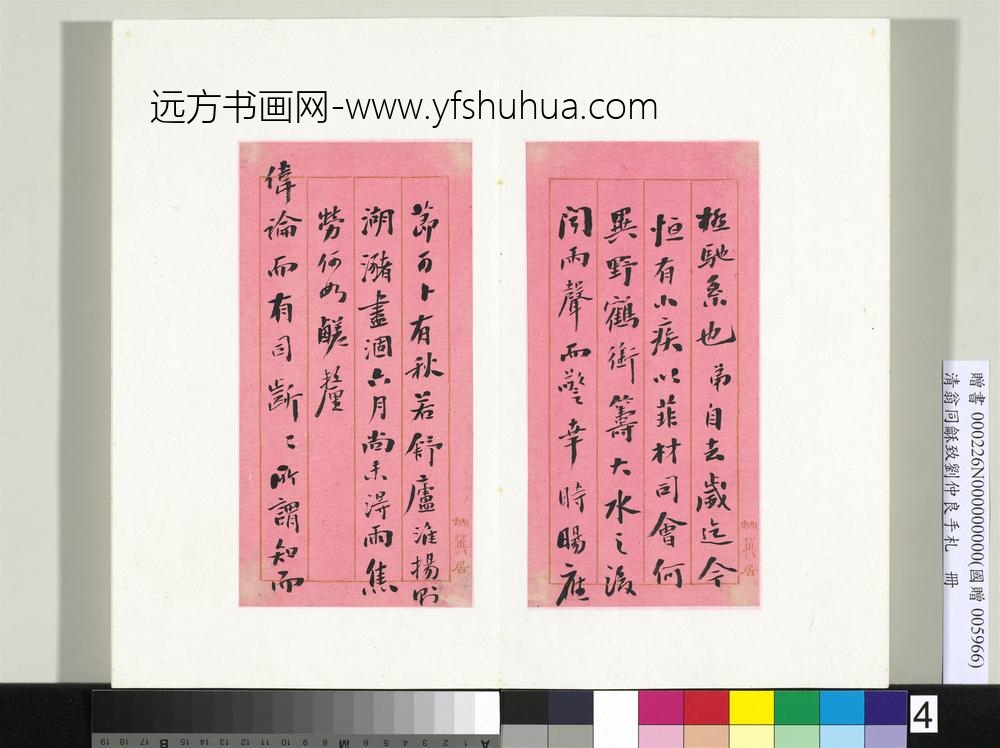 远方书画网-www.yfshuhua.com
極馳系也弟自去歲迄今
恒有小疾以菲材司會何
異野鶴銜籌大水之後
聞雨聲而驚幸時暘應
節可卜有秋若舒廬淮揚則
湖瀦盡涸六月尚未得雨焦
勞何如鹺釐
偉論而有司齗〻所謂知而
居
居
贈書 000226N000000000(國贈 005966)
清翁同龢致劉仲良手札 冊
4